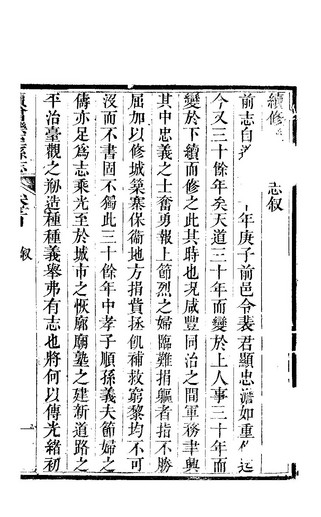 續修 志叙
前志自 年庚子前邑令裴君顯忠 如重修迄
今又三十餘年矣天道三十年而變於上人事三十年而
變於下續而修之此其時也况咸豐同治之間軍務聿興
其中忠義之士奮勇報上節烈之婦臨難捐軀者指不勝
屈加以修城築寨保衞地方捐貲拯飢補救窮黎均不可
沒而不書固不獨此三十餘年中孝子順孫義夫節婦之
儔亦足爲志乘光至於城市之恢廓廟塾之建新道路之
平治臺觀之剙造種種義舉弗有志也將何以傳光緒初
縣志
卷首
叙
一